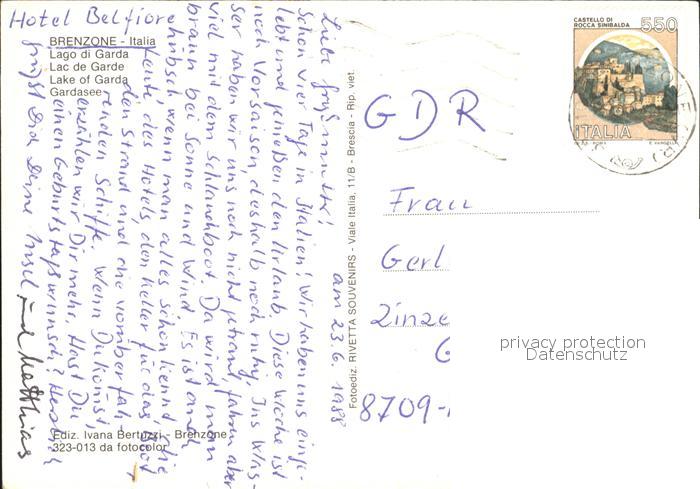 Hotel Belfiore
BRENZONE - Italia
Lago di Garda
Lac de Garde
Lake of Garda
Gardasee
Ediz. Ivana Bertuzzi - Brenzone
323-013 da fotocolor
Fotoediz. RIVETTA SOUVENIRS - Viale Italia, 11/B - Brescia - Rip. viet.
am 23.6. 1988
Liebe
schon vier Tage in Italien! Wir haben uns einge-
lebt und genießen den Urlaub. Diese Woche ist
noch Vorsaison, deshalb noch ruhig. Ins Was-
ser haben wir uns noch nicht getraut, fahren aber
viel mit dem Schlauchboot. Da wird man
braun bei Sonne und Wind. Es ist auch
hübsch, wenn man alles schon kennt, die
Leute des Hotels, den Keller für das Boot
den Strand und die vorüberfah-
renden Schiffe. Wenn Du kommst,
erzählen wir Dir mehr. Hast Du
einen Geburtstagswunsch? Herzlich
grüßt Dich Deine Insel und Matthias
CASTELLO DI
ROCCA SINIBALDA
550
ITALIA
GDR
Frau
Gerl
Zinze
G
8709-
privacy protection
Datenschutz